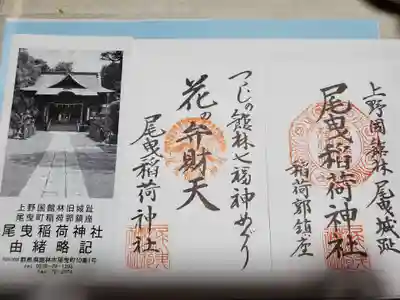 上野国館林尾曳城趾
尾曳稲荷神社
稲荷郭鎮座
つつじの館林七福神めぐり
花の弁財天
尾曳稲荷神社
上野国館林旧城趾
尾曳町稲荷郭鎮座
尾曳稲荷神社
由緒略記